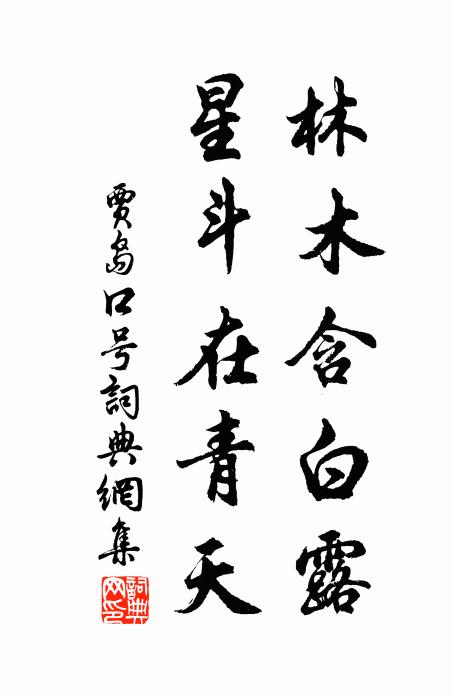 林木含白露
星斗在青天
賈島口号詞典網集
詞典網印